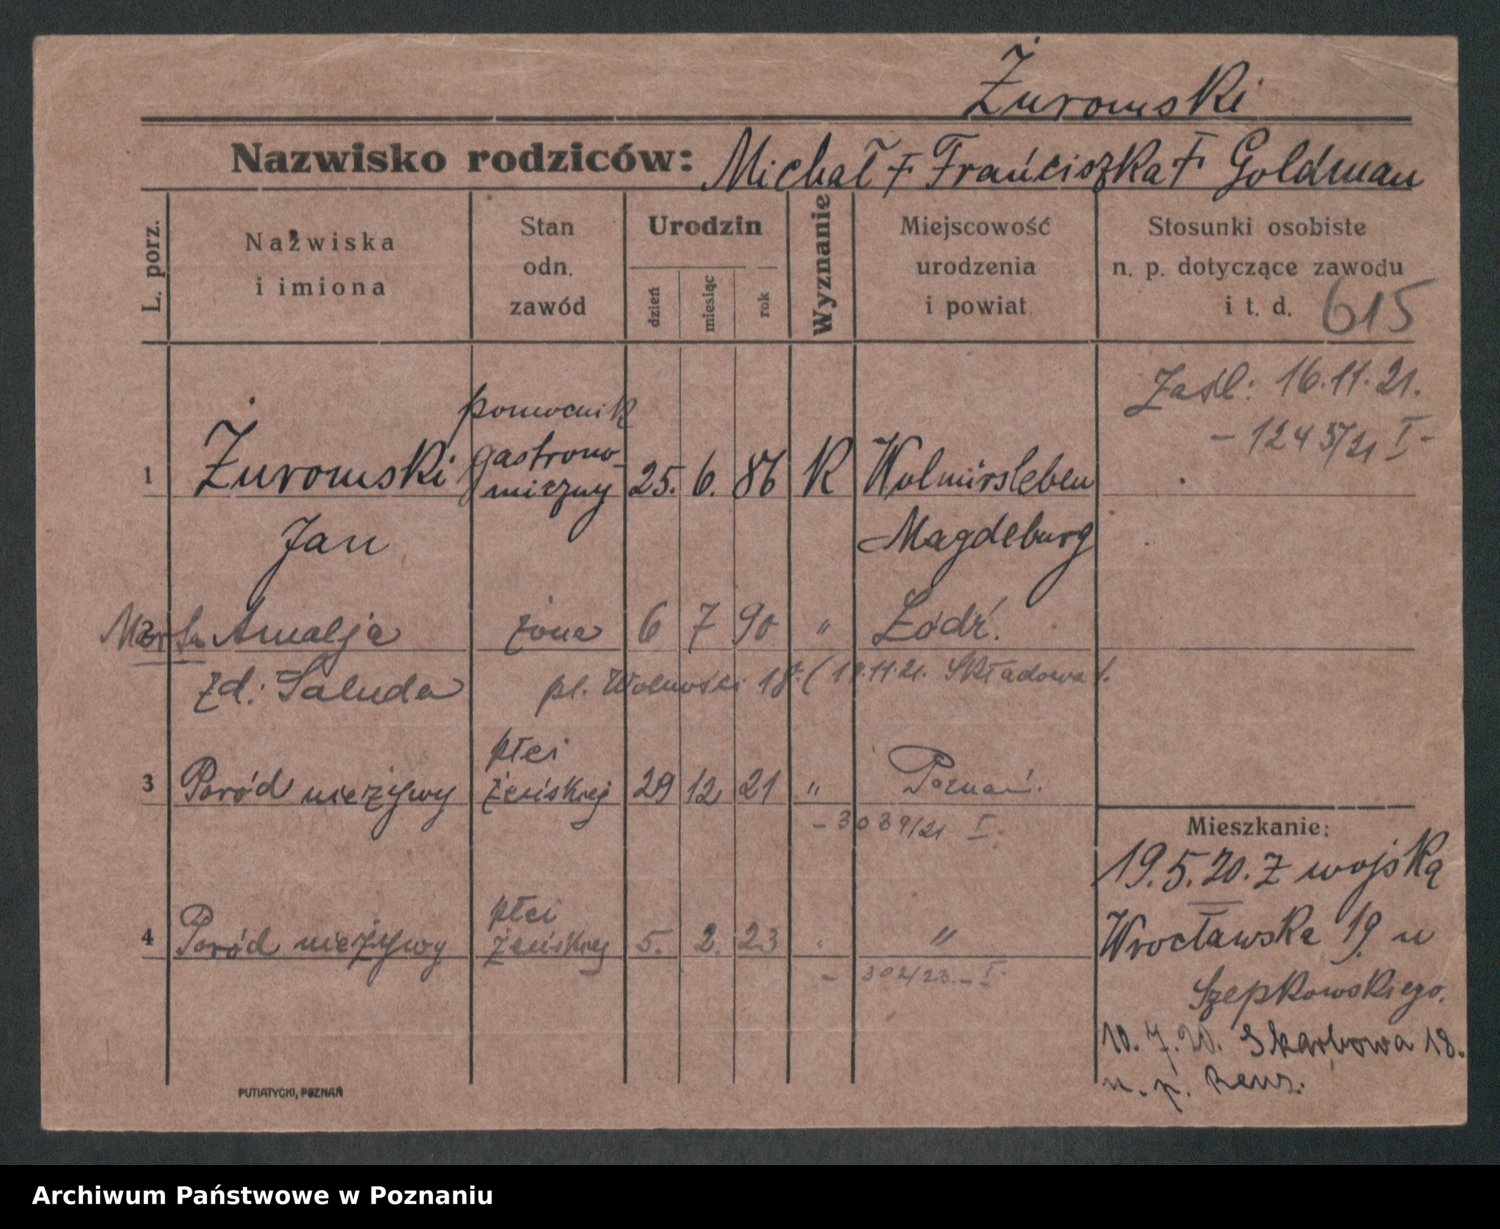 Żuromski
Nazwisko rodziców: Michał † Frańciszka † Goldman
L. porz.
Nazwiska
i imiona
Stan
odn.
zawód
Urodzin
dzień
miesiąc
rok
Wyznanie
Miejscowość
urodzenia
i powiat
Stosunki osobiste
n. p. dotyczące zawodu
i t. d. 615
Zaśl: 16.11.21.
- 1245/21 I -
pomocnik
gastrono-
1 Żuromski miczny 25. 6. 86 K Wolmirsleben
Jan Magdeburg
2 Amalja żona 6 7 90 " Łódź.
zd: Saluda pl. Wolności 18. ( 19.11.21. Składowa
płci
3 Poród nieżywy żeńskiej 29 12 21 " Poznań.
- 3039/21 I.
płci
4 Poród nieżywy żeńskiej 5. 2. 23 " "
- 302/23. - I.
Mieszkanie:
19.5.20. z wojska
Wrocławska 19. u
Szepkowskiego.
10. 7. 20. Skarbowa 18.
u. p.
PUTIATYCKI, POZNAŃ
Archiwum Państwowe w Poznaniu